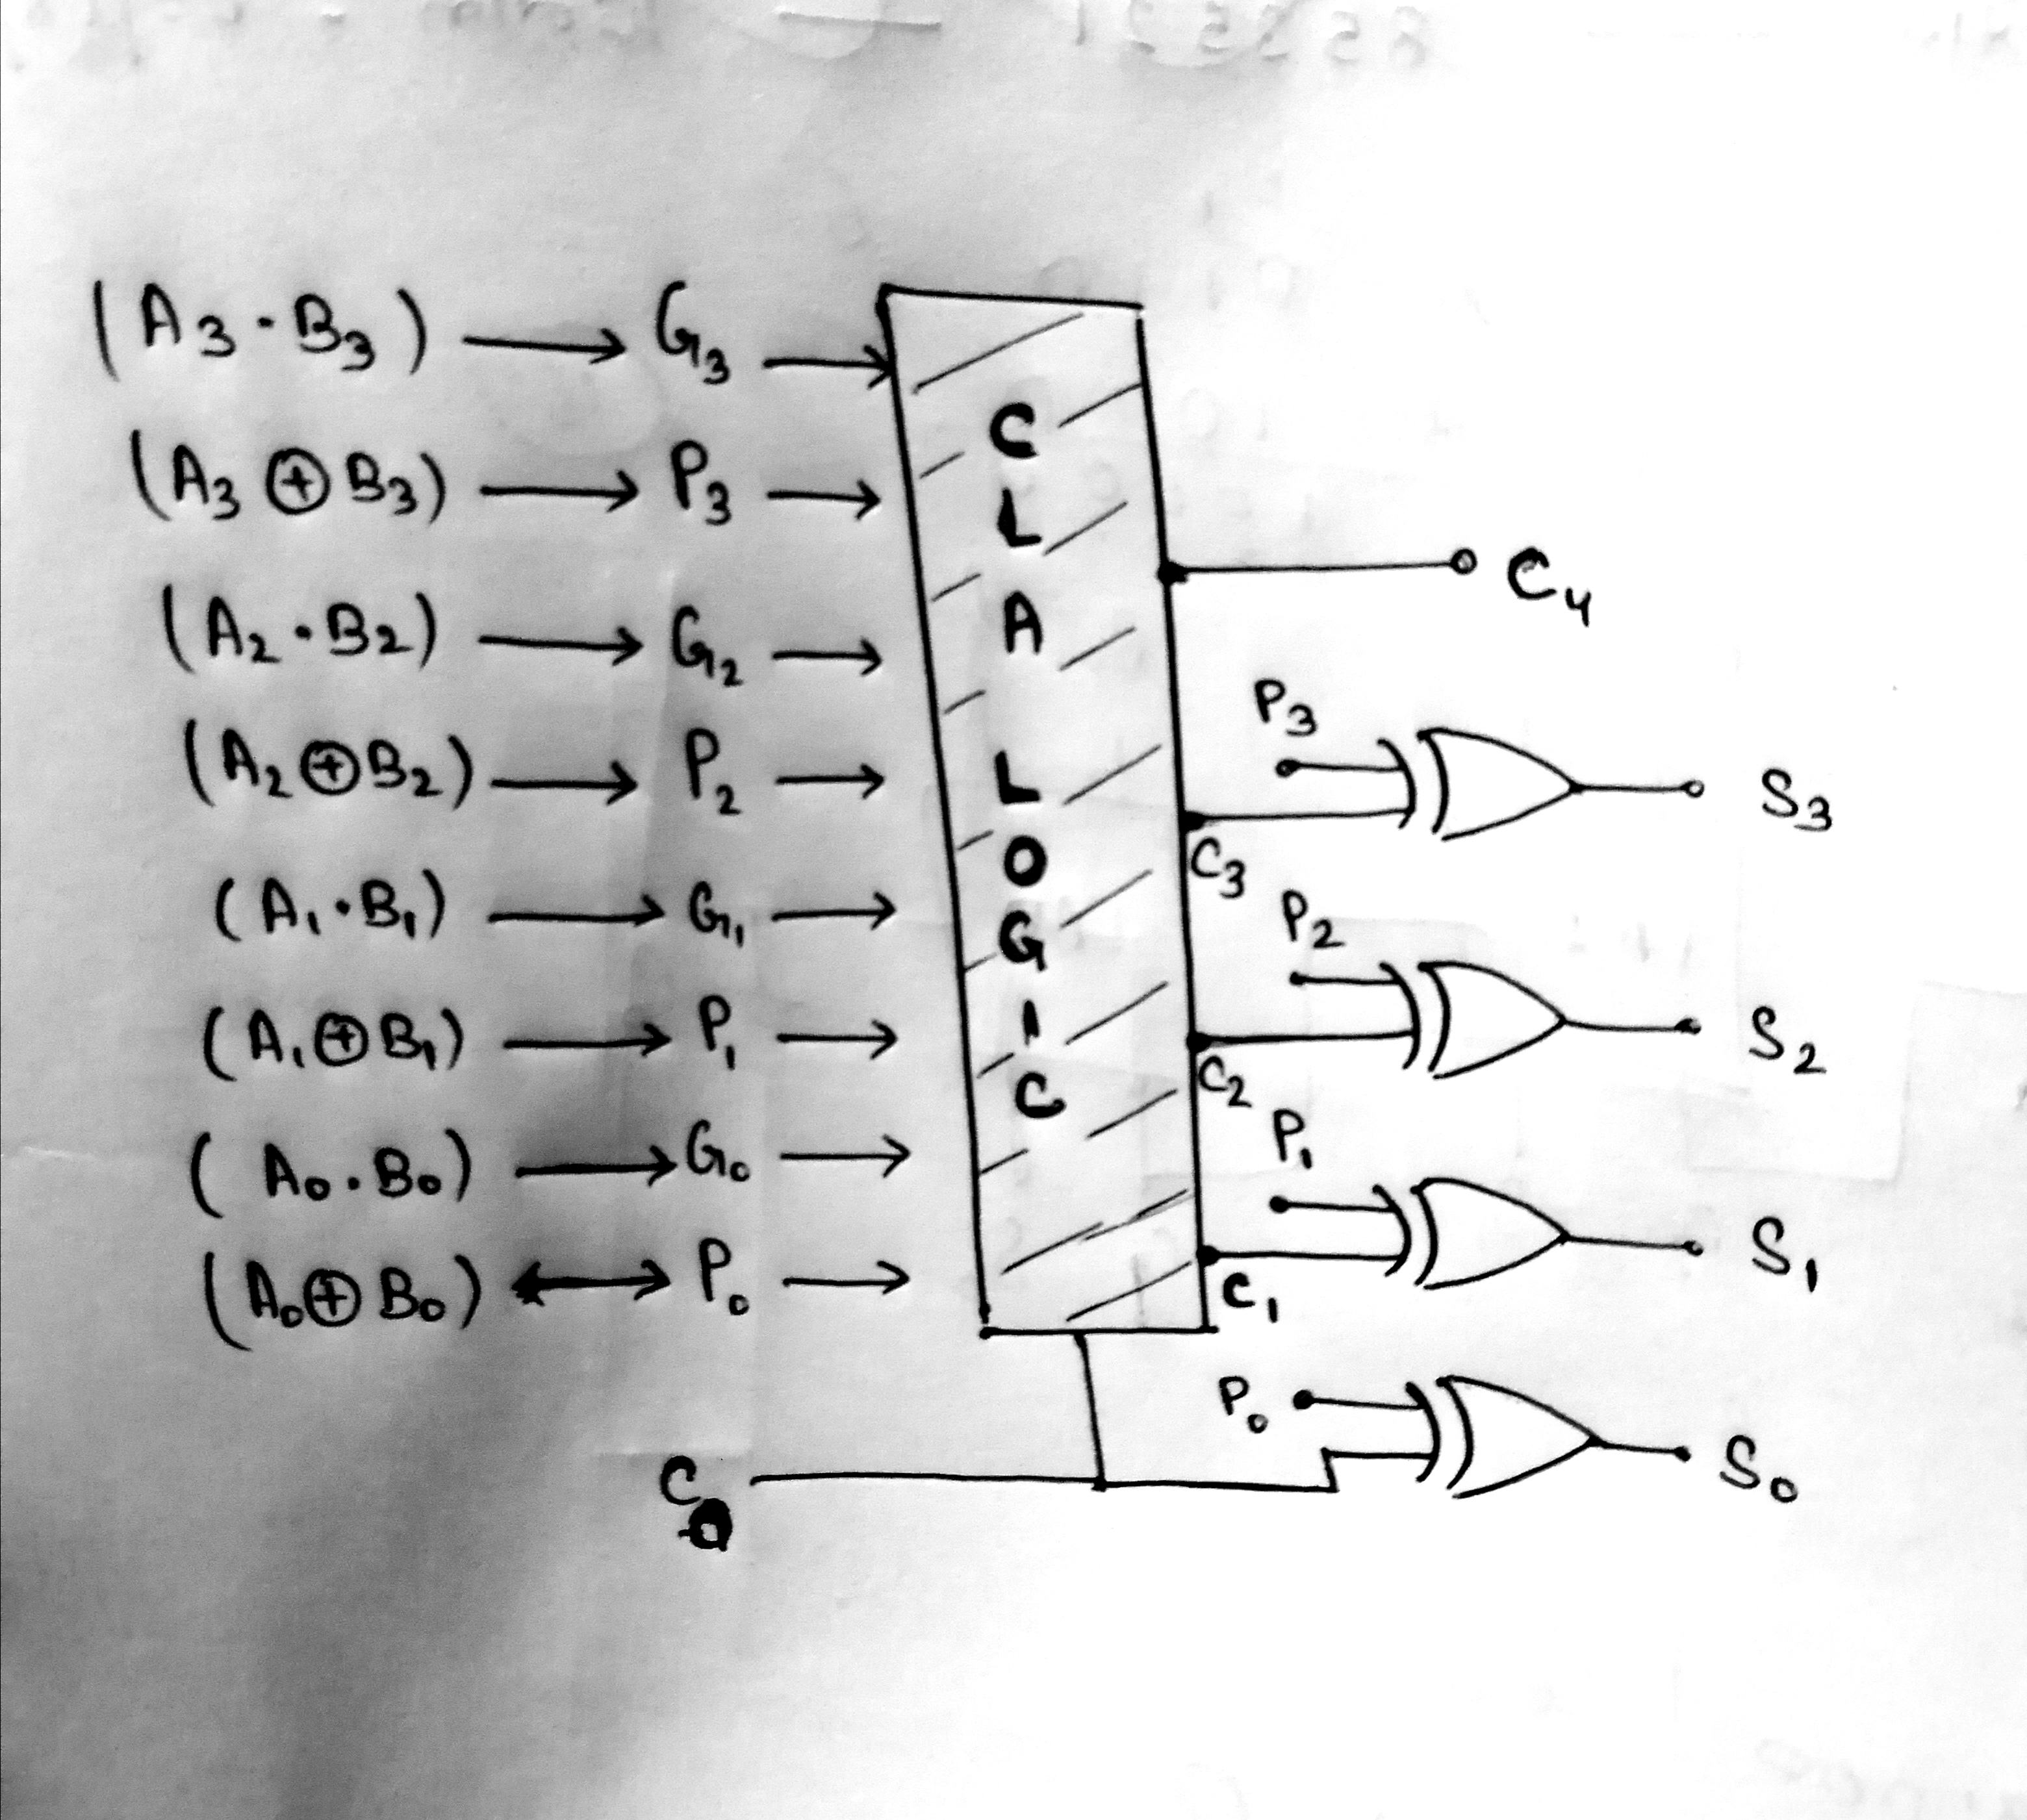 (A₃·B₃) → G₃ →
(A₃⊕B₃) → P₃ →
(A₂·B₂) → G₂ →
(A₂⊕B₂) → P₂ →
(A₁·B₁) → G₁ →
(A₁⊕B₁) → P₁ →
(A₀·B₀) → G₀ →
(A₀⊕B₀) ↔ P₀ →
C₀
CLA LOGIC
C₄
P₃
C₃
S₃
P₂
C₂
S₂
P₁
C₁
S₁
P₀
S₀